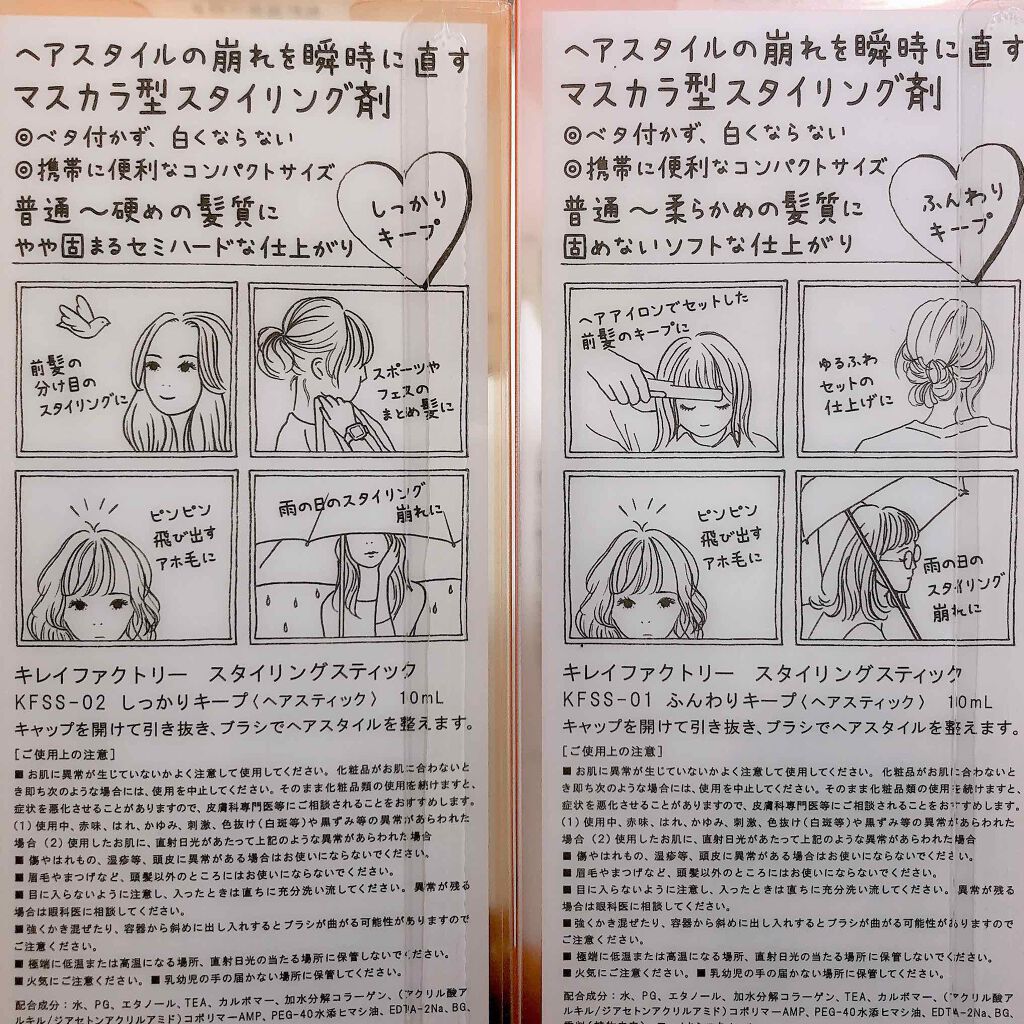 ヘアスタイルの崩れを瞬時に直す
マスカラ型スタイリング剤
◎ベタ付かず、白くならない
◎携帯に便利なコンパクトサイズ
普通〜硬めの髪質に
やや固まるセミハードな仕上がり
しっかり
キープ
前髪の
分け目の
スタイリングに
スポーツや
フェスの
まとめ髪に
ピンピン
飛び出す
アホ毛に
雨の日のスタイリング
崩れに
キレイファクトリー スタイリングスティック
KFSS-02 しっかりキープ〈ヘアスティック〉 10mL
キャップを開けて引き抜き、ブラシでヘアスタイルを整えます。
[ご使用上の注意]
■お肌に異常が生じていないかよく注意して使用してください。化粧品がお肌に合わないと
き即ち次のような場合には、使用を中止してください。そのまま化粧品類の使用を続けますと、
症状を悪化させることがありますので、皮膚科専門医等にご相談されることをおすすめします。
(1)使用中、赤味、はれ、かゆみ、刺激、色抜け(白斑等)や黒ずみ等の異常があらわれた
場合(2)使用したお肌に、直射日光があたって上記のような異常があらわれた場合
■傷やはれもの、湿疹等、頭皮に異常がある場合はお使いにならないでください。
■眉毛やまつげなど、頭髪以外のところにはお使いにならないでください。
■目に入らないように注意し、入ったときは直ちに充分洗い流してください。異常が残る
場合は眼科医に相談してください。
■強くかき混ぜたり、容器から斜めに出し入れするとブラシが曲がる可能性がありますので
ご注意ください。
■極端に低温または高温になる場所、直射日光の当たる場所に保管しないでください。
■火気にご注意ください。■乳幼児の手の届かない場所に保管してください。
配合成分:水、PG、エタノール、TEA、カルボマー、加水分解コラーゲン、(アクリル酸ア
ルキル/ジアセトンアクリルアミド)コポリマーAMP、PEG-40水添ヒマシ油、EDTA-2Na、BG、
ヘアスタイルの崩れを瞬時に直す
マスカラ型スタイリング剤
◎ベタ付かず、白くならない
◎携帯に便利なコンパクトサイズ
普通〜柔らかめの髪質に
固めないソフトな仕上がり
ふんわり
キープ
ヘアアイロンでセットした
前髪のキープに
ゆるふわ
セットの
仕上げに
ピンピン
飛び出す
アホ毛に
雨の日の
スタイリング
崩れに
キレイファクトリー スタイリングスティック
KFSS-01 ふんわりキープ〈ヘアスティック〉 10mL
キャップを開けて引き抜き、ブラシでヘアスタイルを整えます。
[ご使用上の注意]
■お肌に異常が生じていないかよく注意して使用してください。化粧品がお肌に合わないと
き即ち次のような場合には、使用を中止してください。そのまま化粧品類の使用を続けますと、
症状を悪化させることがありますので、皮膚科専門医等にご相談されることをおすすめします。
(1)使用中、赤味、はれ、かゆみ、刺激、色抜け(白斑等)や黒ずみ等の異常があらわれた
場合(2)使用したお肌に、直射日光があたって上記のような異常があらわれた場合
■傷やはれもの、湿疹等、頭皮に異常がある場合はお使いにならないでください。
■眉毛やまつげなど、頭髪以外のところにはお使いにならないでください。
■目に入らないように注意し、入ったときは直ちに充分洗い流してください。異常が残る
場合は眼科医に相談してください。
■強くかき混ぜたり、容器から斜めに出し入れするとブラシが曲がる可能性がありますので
ご注意ください。
■極端に低温または高温になる場所、直射日光の当たる場所に保管しないでください。
■火気にご注意ください。■乳幼児の手の届かない場所に保管してください。
配合成分:水、PG、エタノール、TEA、カルボマー、加水分解コラーゲン、(アクリル酸ア
ルキル/ジアセトンアクリルアミド)コポリマーAMP、PEG-40水添ヒマシ油、EDTA-2Na、BG、